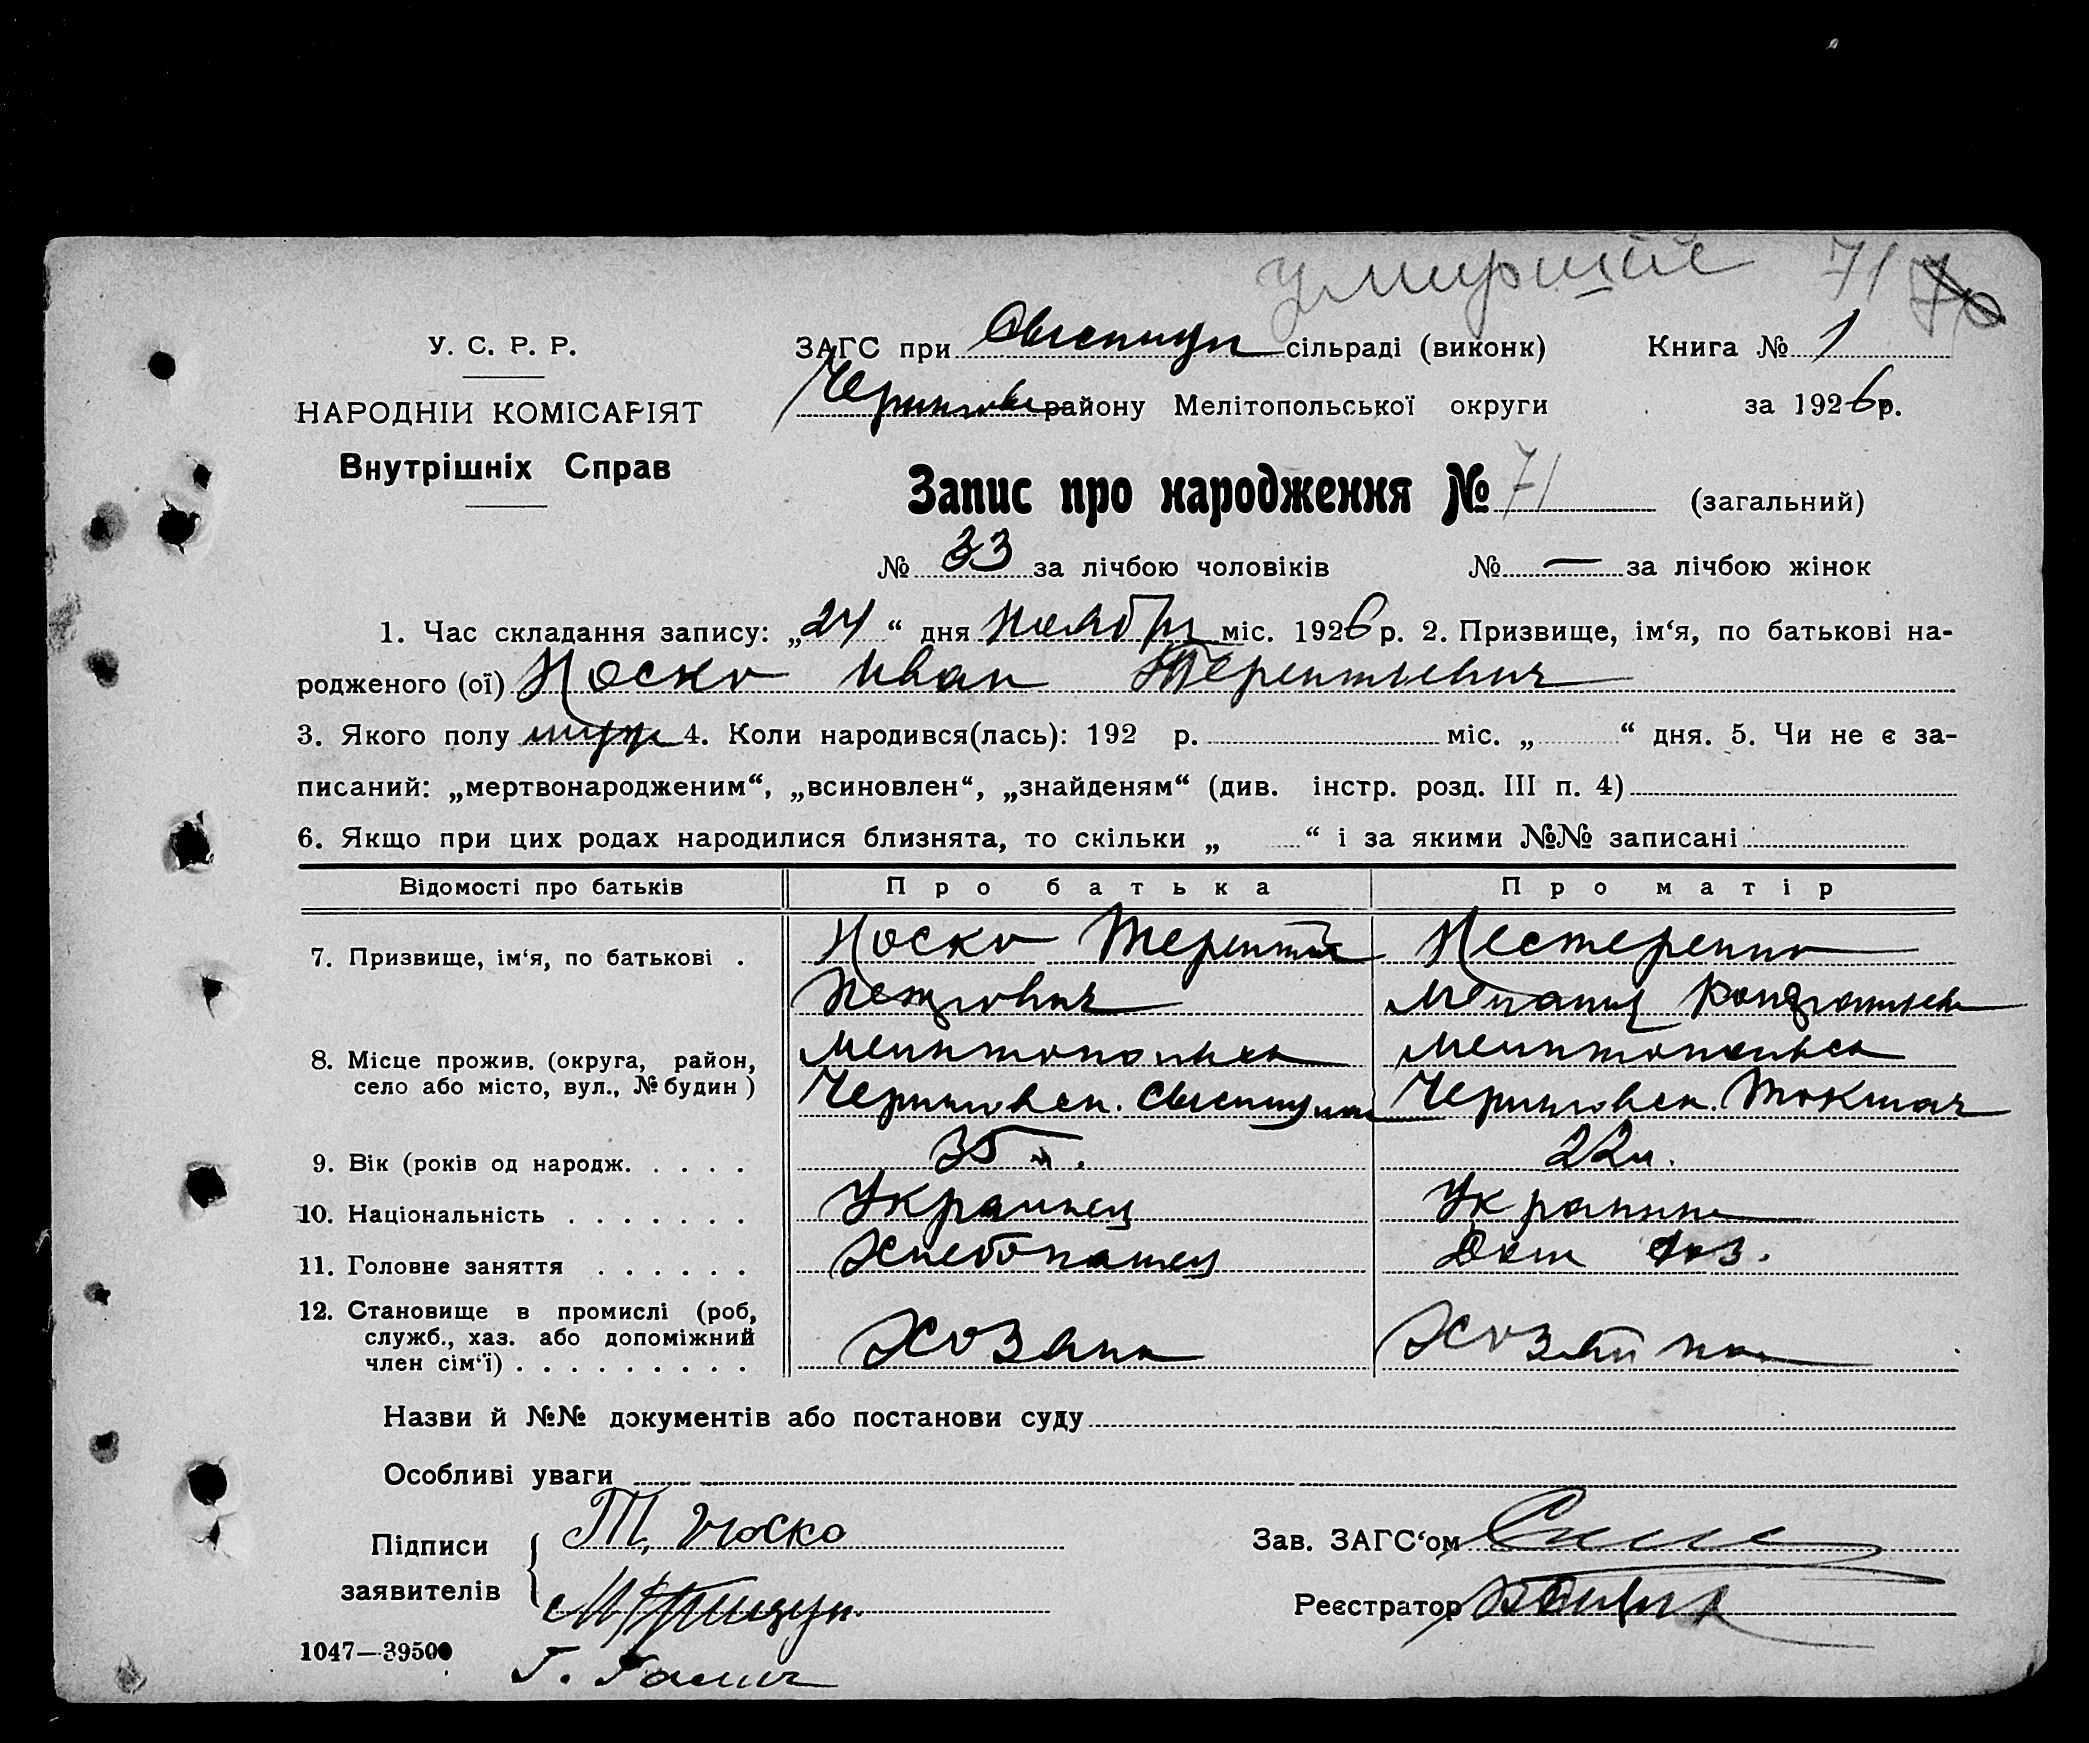 71 70
У. С. Р. Р.
ЗАГС при сільраді (виконк) Книга № 1
НАРОДНІЙ КОМІСАРІЯТ
району Мелітопольської округи за 1926р.
Внутрішніх Справ
Запис про народження № 71 (загальний)
№ 33 за лічбою чоловіків № — за лічбою жінок
1. Час складання запису: „24“ дня Ноябр міс. 1926р. 2. Призвище, ім‘я, по батькові на-
родженого (ої) Носко Иван Терентьевич
3. Якого полу муж 4. Коли народився(лась): 192 р. міс. „ “ дня. 5. Чи не є за-
писаний: „мертвонародженим“, „всиновлен“, „знайденям“ (див. інстр. розд. III п. 4)
6. Якщо при цих родах народилися близнята, то скільки „ “ і за якими №№ записані
Відомості про батьків Про батька Про матір
7. Призвище, ім‘я, по батькові . Носко Терентий Нестеренко
Петрович Кондратьев
8. Місце прожив. (округа, район, Мелитопольск Мелитопольск
село або місто, вул., № будин ) Черниговск. Черниговск. Токмач
9. Вік (років од народж. . . . . 35 л. 22 л.
10. Національність . . . . . . . Украинец Украинк
11. Головне заняття . . . . . . Хлебопашец Дом хоз.
12. Становище в промислі (роб,
служб., хаз. або допоміжний Хозяин Хозяйка
член сім‘ї) . . . . . . . . .
Назви й №№ документів або постанови суду
Особливі уваги
Підписи Т. Носко Зав. ЗАГС‘ом
заявителів Реєстратор
1047—39500